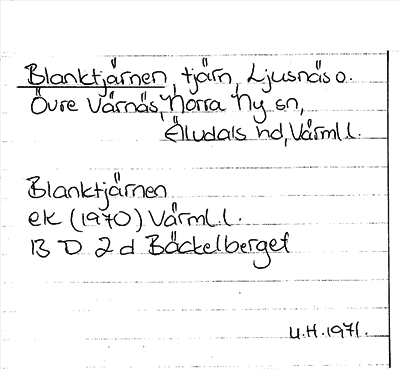 Blanktjärnen, tjärn, Ljusnäs o.
Övre Värnäs, Norra Ny sn,
Älvdals hd, Värml l.
Blanktjärnen
ek (1970) Värml. l.
13 D 2 d Bäckelberget
U.H. 1971.